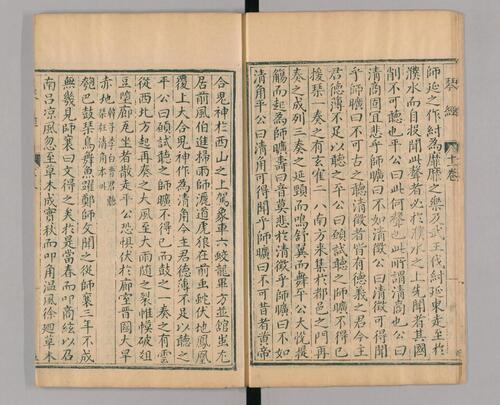 琴經
師延之作紂為靡靡之樂及武王伐紂延東走至於
濮水而自投聞此聲者必於濮水之上先聞者其國
削不可聽也平公曰此何聲也此所謂清商也公曰
清商固宜悲乎師曠曰不如清徵公曰清徵可得聞
乎師曠曰不可古之聽清徵者皆有德義之君今主
君德薄不足以聽之平公曰願試聽之師曠不得已
援琴一奏之有玄雀二八南方來集於郡邑之門再
奏之成列三奏之延頸而鳴舒翼而舞平公大悅提
觴而起為師曠壽曰音莫悲於清徵乎師曠曰不如
清角平公曰清角可得聞乎師曠曰不可昔者黃帝
合鬼神於西山之上駕象車六蛟龍畢方並鎋蚩尤
居前風伯進掃雨師灑道虎狼在前虫蛇伏地鳳凰
覆上大合鬼神作為清角今主君德薄不足以聽之
平公曰願試聽之師曠不得已而鼓之一奏之有雲
從西北方起再奏之大風至大雨隨之裂帷幙破俎
豆墮廊瓦坐者散走平公恐懼伏於廊室晉國大旱
赤地
瓠巴鼓琴鳥舞魚躍鄭師文聞之從師襄三年不成
無幾見師襄曰文得之矣於是當春而叩商絃以召
南呂涼風忽至草木成實秋而叩角溫風徐廻草木